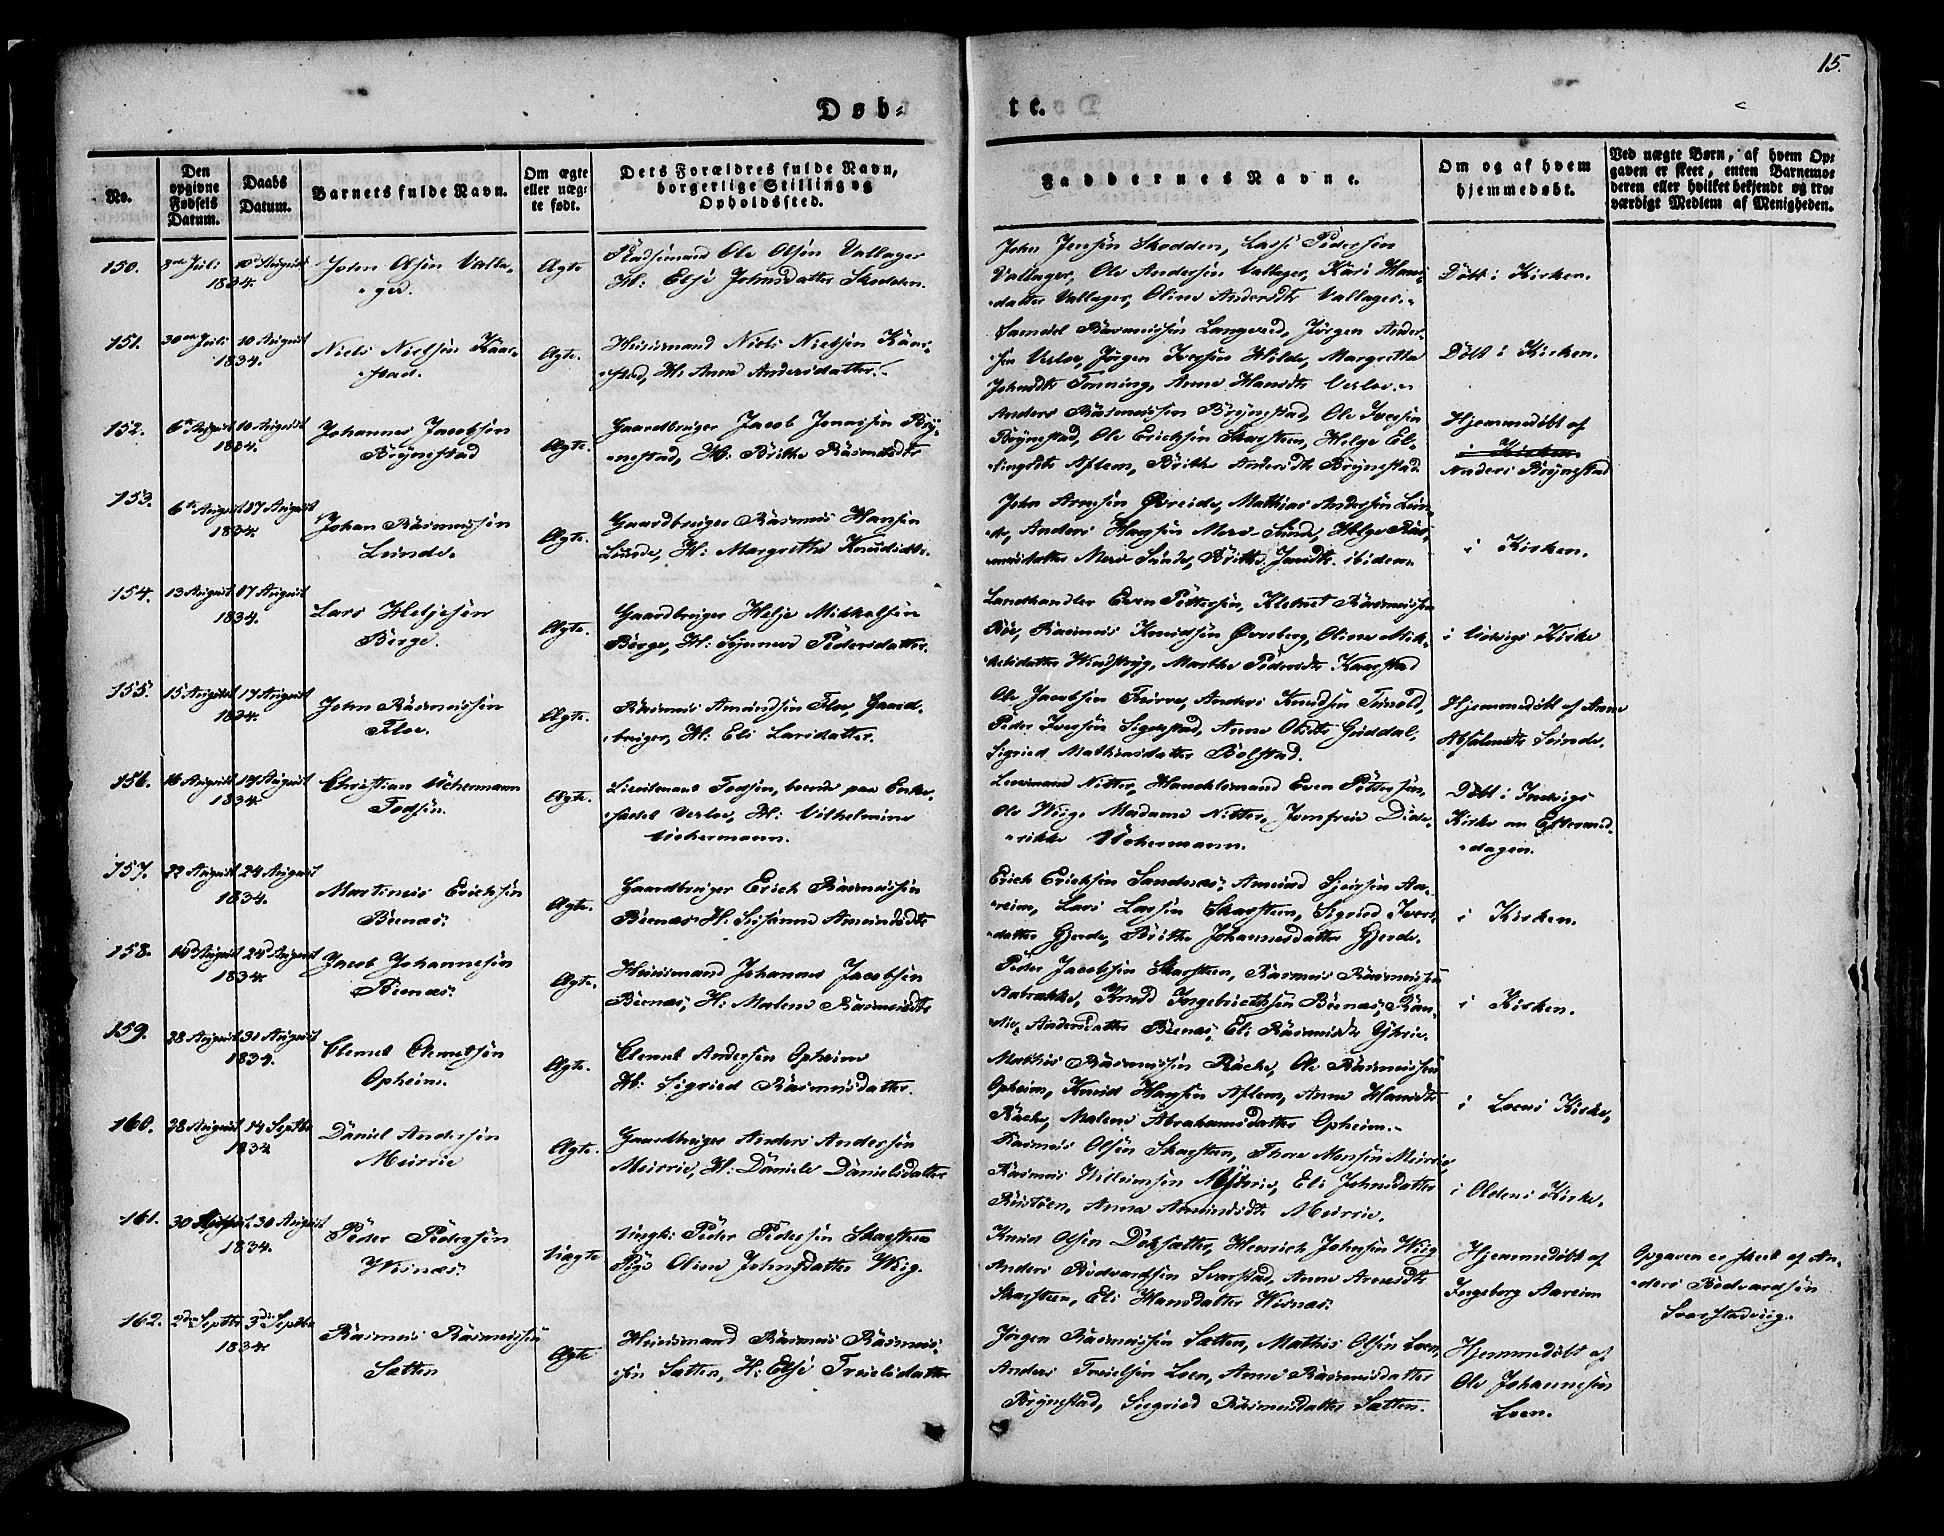 15.
Døb-
te.
No.
Den opgivne Fødsels Datum.
Daabs Datum.
Barnets fulde Navn.
Om ægte eller uægte født.
Dets Forældres fulde Navn, borgerlige Stilling og Opholdssted.
Faddernes Navne.
Om og af hvem hjemmedøbt.
Ved uægte Børn, af hvem Opgaven er skeet, enten Barnemoderen eller hvilket bekjendt og troværdigt Medlem af Menigheden.
150.
Juli 10 August
1834.
John Olsen Valla-
ger.
Ægte
Pladsmand Ole Olsen Vallager
H: Elsje Johnsdatter Skodden.
John Jensen Skodden, Lasse Pedersen
Vallager, Ole Andersen Vallager, Kari Hans-
datter Vallager, Oline Andersdtr Vallager.
Døbt i Kirken.
151.
30 Juli 10 August
1834.
Niels Nielsen Kaar-
stad.
Ægte.
Huusmand Niels Nielsen Kaar-
stad, H: Anne Andersdatter.
Samuel Rasmussen Langesed, Jørgen Ander-
sen Verloe, Jørgen Iversen Hilde, Margrethe
Johnsdtr Tonning, Anne Hansdtr Verloe.
Døbt i Kirken.
152.
6 August 10 August
1834.
Johannes Jacobsen
Brynestad
Ægte.
Gaardbruger Jacob Jonnssen Bry-
nestad, H: Brithe Rasmusdtr
Anders Rasmussen Brynestad, Ole Iversen
Brynestad, Ole Ericksen Skarsteen, Helge El-
lingsdtr Aflem, Brithe Andersdtr Brynestad.
Hjemmedøbt af
i Kirken.
Anders Brynestad
153.
6 August 17 August
1834.
Johan Rasmussen
Lunde.
Ægte.
Gaardbruger Rasmus Hansen
Lunde, H: Margrethe Knudsdtr.
John Arnesen Øvreide, Mathias Andersen Lun-
de, Anders Hansen Mere-Sunde, Helge Ras-
musdatter Mere Sunde, Brithe Jonsdtr. ibidem.
i Kirken.
154.
13 August 17 August
1834.
Lars Heljesen
Berge.
Ægte.
Gaardbruger Helje Mikkelsen
Berge, H: Synneve Pedersdatter.
Landhandler Even Pettersen, Klemet Rasmussen
Bøe, Rasmus Knudsen Øvreberg, Oline Mik-
kelsdatter Windsryg, Marthe Pedersdtr Kaarstad
i Udvigs Kirke
155.
15 August 17 August
1834.
John Rasmussen
Floe.
Ægte.
Rasmus Amundsen Floe, Gaard-
bruger, H: Eli Larsdatter.
Ole Jacobsen Furre, Anders Knudsen Tunold,
Peder Iversen Sigerstad, Anne Olsdtr Guddal,
Sigried Mathiasdatter Bolstad.
Hjemmedøbt af Anne
Absalonsdtr Sunde.
156.
16 August 17 August
1834.
Christian Uchermann
Todsen.
Ægte.
Lieutenant Todsen, boende paa Enke-
sædet Verloe, H: Vilhelmine
Uchermann.
Lensmand Nitter, Handelsmand Even Pettersen,
Ole Wiig, Madame Nitter, Jomfrue Dide-
rikke Uchermann.
Døbt i Indvigs
Kirke om Eftermid-
dagen.
157.
22 August 24 August
1834.
Martinus Ericksen
Bienæs.
Ægte.
Gaardbruger Erich Rasmussen
Bienæs, H: Susanna Amundsdtr
Erich Ericksen Sandnæs, Amund Siversen Aa-
reim, Lars Larsen Skarsteen, Sigried Ivers-
datter Gjerde, Brithe Johannesdatter Gjerde.
i Kirken.
158.
14 August 24 August
1834.
Jacob Johannesen
Bienæs.
Ægte.
Huusmand Johannes Jacobsen
Bienæs, H: Malene Rasmusdtr
Peder Jacobsen Skarsteen, Rasmus Rasmussen
Aabrække, Knud Ingebrictsen Bienæs, Ran-
nie Andersdatter Bienæs, Eli Rasmusdtr Yttrie.
i Kirken.
159.
28 August 31 August
1834.
Clemet Clemetsen
Opheim.
Ægte.
Clemet Andersen Opheim
H: Sigried Rasmusdatter.
Mathis Rasmussen Rache, Ole Rasmussen
Opheim, Knud Hansen Aflem, Anne Hansdtr
Rache, Malene Abrahamsdatter Opheim.
i Loens Kirke.
160.
28 August 14 Septbr
1834
Daniel Andersen
Muirie
Ægte.
Gaardbruger Anders Andersen
Muirie, H: Daniele Danielsdatter
Rasmus Olsen Skarsteen, Thore Monsen Muirie,
Rasmus Willumsen Muirie, Eli Johnsdatter
Rustøen, Anna Amundsdtr Muirie.
i Oldens Kirke.
161.
30 August 30 August
1834.
Peder Pedersen
Wisnæs.
Uægte
Ungk: Peder Pedersen Skarsteen
Pige Oline Johnsdatter Wiig.
Knud Olsen Dokset​ter, Henrich Johnsen Wiig
Anders Bødvardsen Svarstad, Anne Arnesdtr
Skarsteen, Eli Hansdatter Wisnæs.
Hjemmedøbt af
Ingeborg Aareim
Opgaven er skeet af An-
ders Bødvardsen
Svarstadviig.
162.
2den Septbr 3die Septbr
1834.
Rasmus Rasmussen
Sætten
Ægte
Huusmand Rasmus Rasmus-
sen Sætten, H: Elsje Truelsdatter
Jørgen Rasmussen Sætten, Mathis Olsen Loen,
Anders Truelsen Loen, Anne Rasmusdatter
Brynestad, Siegried Rasmusdatter Sætten.
Hjemmedøbt af
Ole Johannesen
Loen.